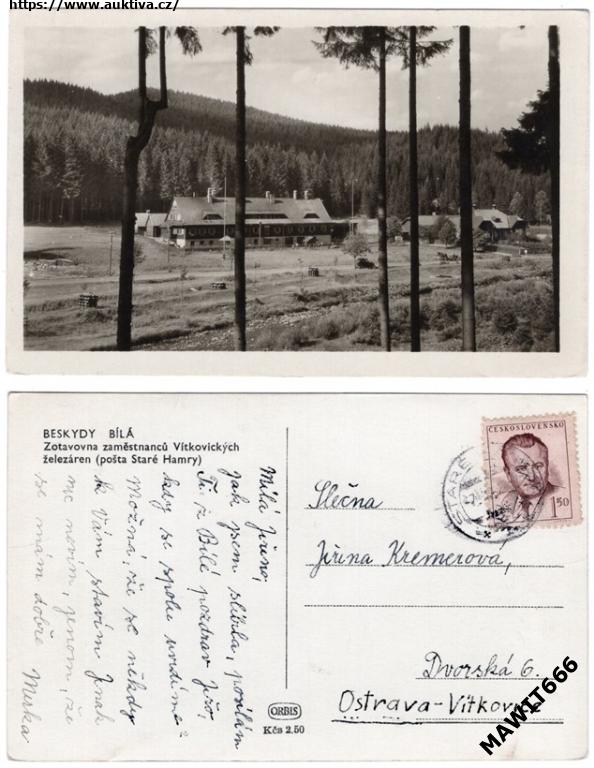 https://www.auktiva.cz/
BESKYDY BÍLÁ
Zotavovna zaměstnanců Vítkovických
železáren (pošta Staré Hamry)
Milá Jiřino,
jak jsem slíbila, posílám
Ti z Bílé pozdrav. Jiřo,
kdy se spolu uvidíme?
Možná, že se někdy
k Vám stavím. Jinak
nic nevím, jenom, že
se mám dobře Mirka
ORBIS
Kčs 2.50
ČESKOSLOVENSKO
1.50
STARÉ
Slečna
Jiřina Kremerová,
Dvorská 6.
Ostrava-Vítkovice
MAWIT666